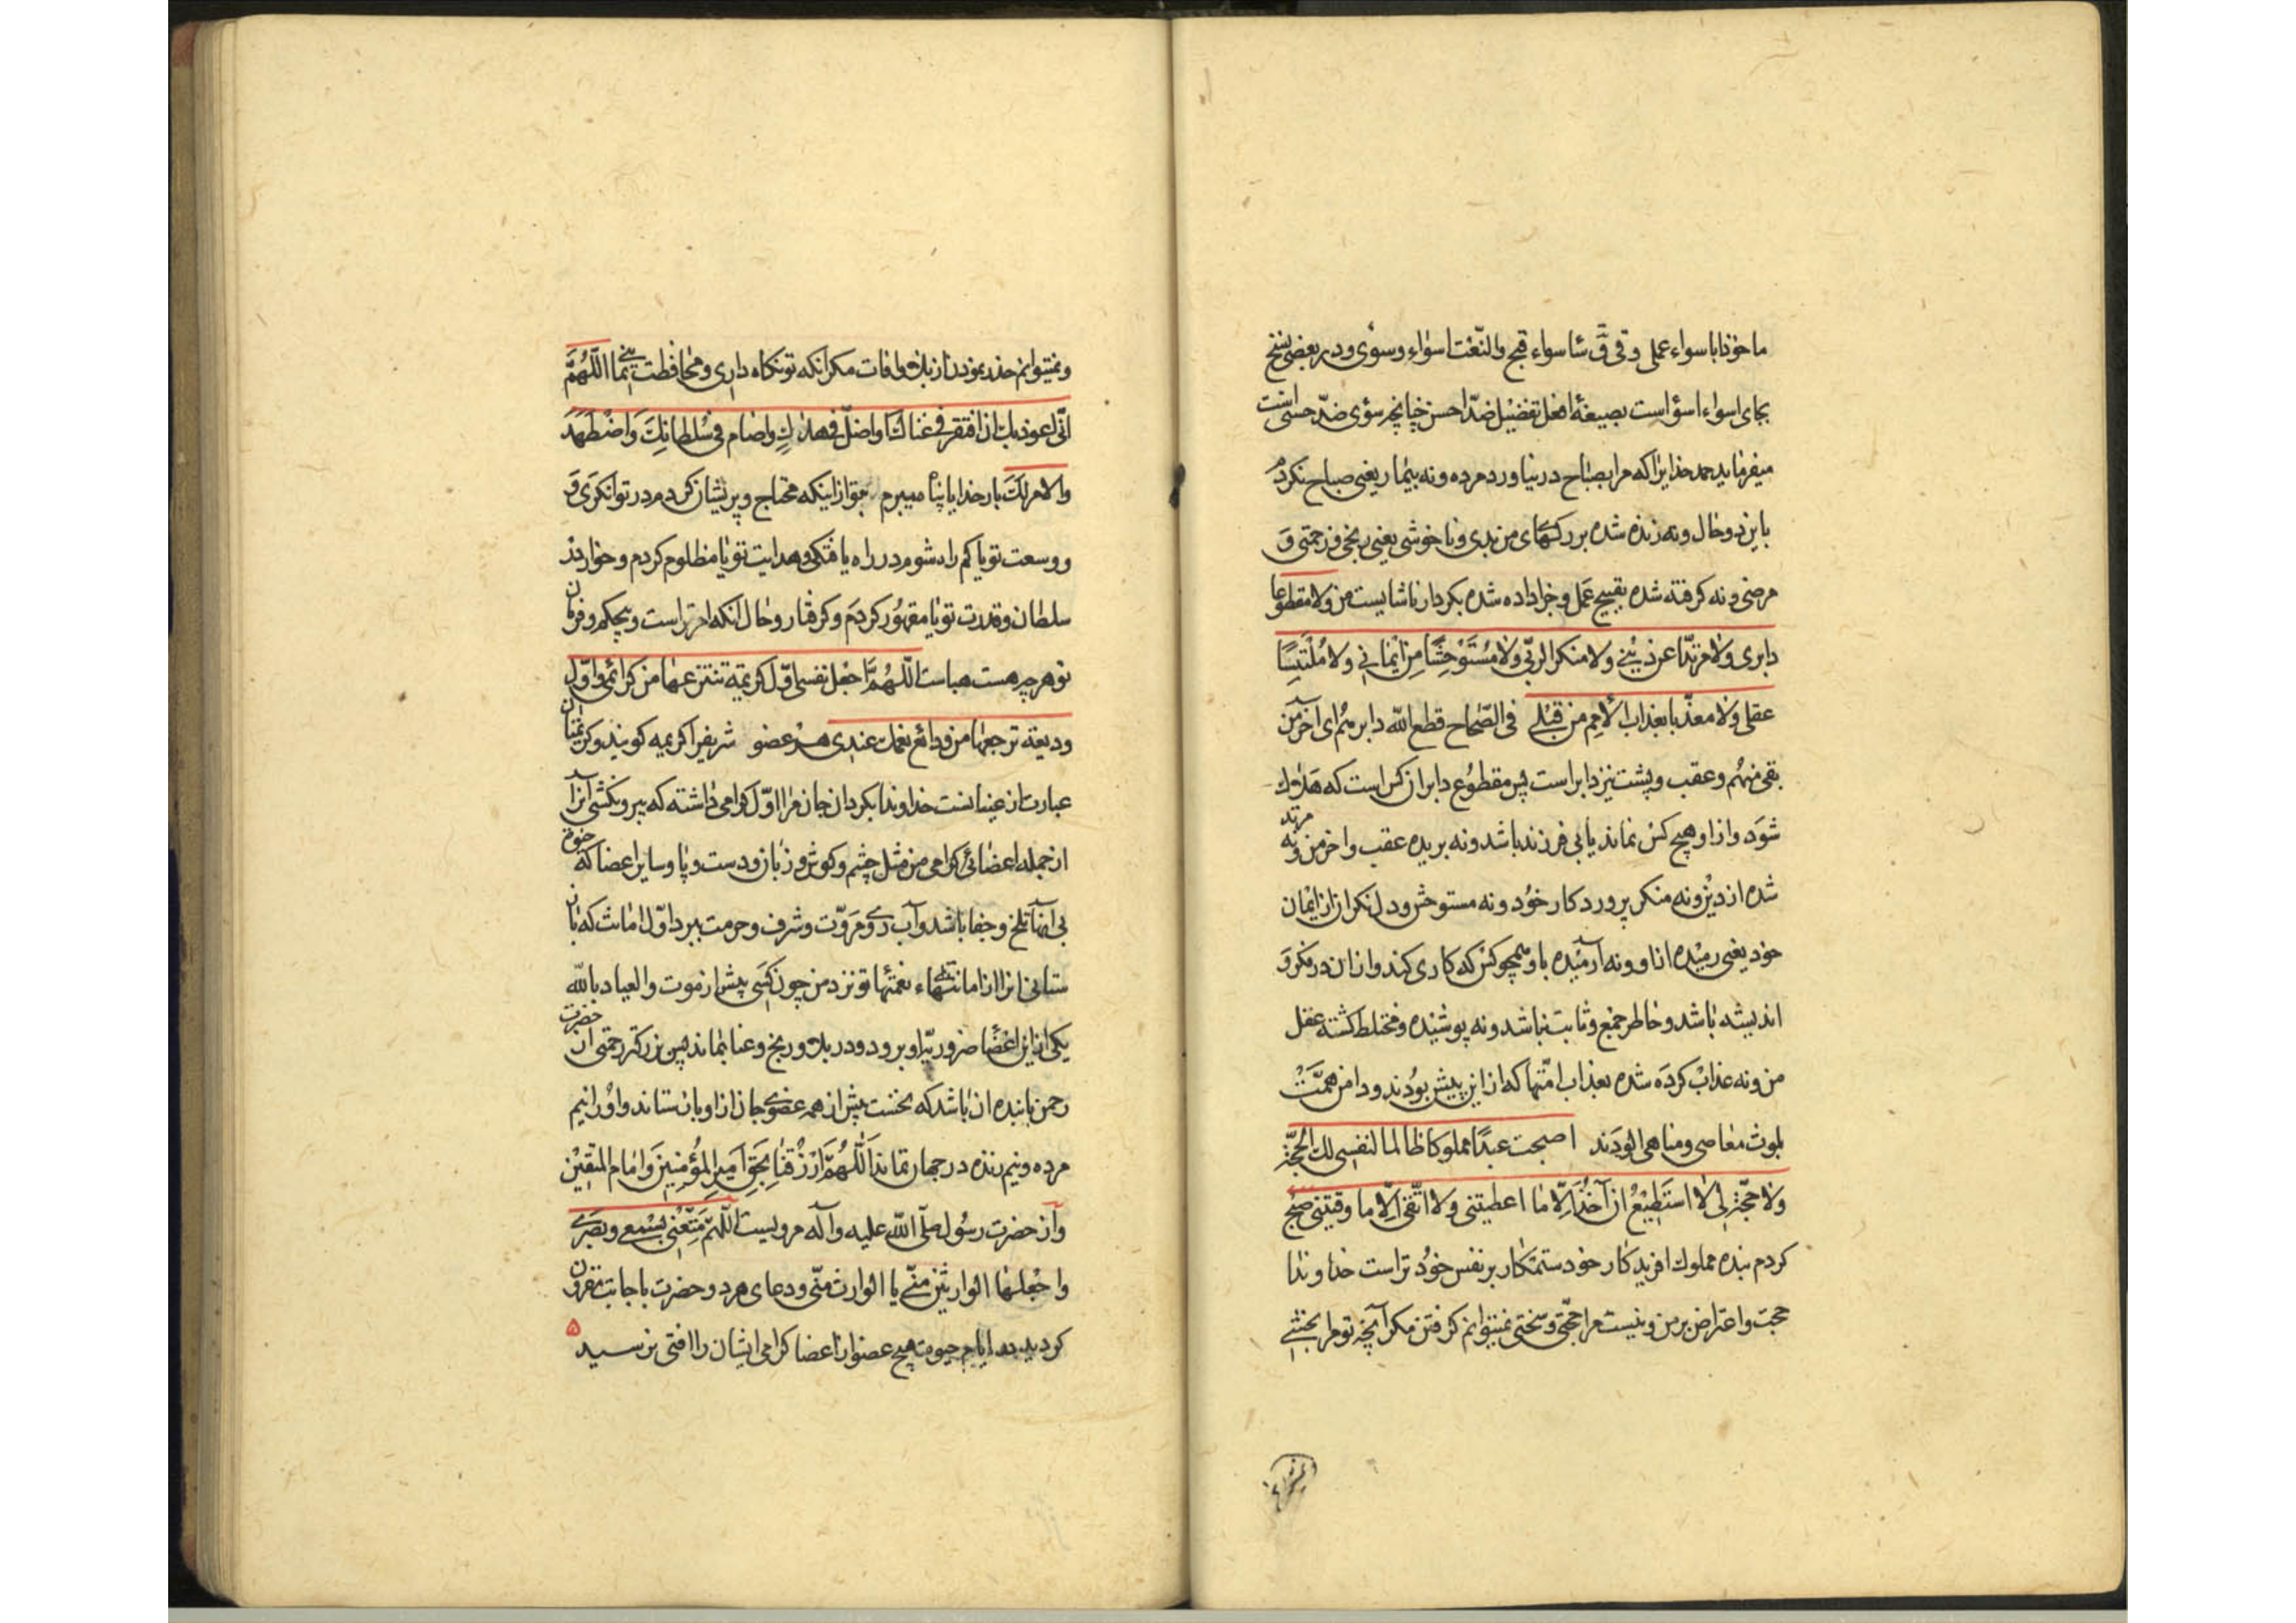 ماخوذا باسواء عملی وفی ق سٔا سواء قبح والنّعت اسواء وسوٰی ودر بعضی نسخ
بجای اسواء اسؤاست بصیغهٔ افعل تفضیل ضدّ احسن چنانچه سؤی ضدّ حسنی است
میفرماید حمد خدایرا که مرا بصباح در نیاورد مرده ونه بیمار یعنی صباح نکردم
باین دو حال ونه زده شده بر رکهای من بدی وناخوشی یعنی رنجی و زحمتی و
مرضی ونه کرفته شده بقبیح عمل وجزا داده شده بکردار ناشایست من ولا مقطوعا
دابری ولا مرتدّا عن دینی ولا منکرا لربّی ولا مستوحشا من ایمانی ولا ملتبسا
عقلی ولا معذّبا بعذاب الامم من قبلی فی الصّحاح قطع اللّه دابرهم ای آخر من
بقی منهم وعقب وپشت نیز دابر است پس مقطوع دابر ان کس است که هلاک
شود واز او هیچ کس نماند یا بی فرزند باشد ونه بریده عقب واخر من ونه مرتد
شده از دین ونه منکر پروردکار خود ونه مستوحش ودل نکران از ایمان
خود یعنی رمیده از او ونه آرمیده باو همچو کسی که کاری کند واز ان در فکر و
اندیشه باشد وخاطر جمع وثابت نباشد ونه پوشیده ومختلط کشته عقل
من ونه عذاب کرده شده بعذاب امّتها که از این پیش بودند ودامن همّت
بلوث معاصی ومناهی الودند اصبحت عبدا مملوکا ظالما لنفسی لک الحجّة علیّ
ولا حجّة لی لا استطیع ان آخذ الّا ما اعطیتنی ولا اتّقی الّا ما وقیتنی صبح
کردم بنده مملوک افریدکار خود ستمکار بر نفس خود تراست خداوندا
حجت واعتراض بر من ونیست مرا حجّتی وسختی نمیتوانم کرفتن مکر آنچه تو مرا بخشی
ونمیتوانم
ونمیتوانم حذر نمودن از بلا وافات مکر انکه تو نکاه داری ومحافظت نمایی اللّهمّ
انّی اعوذ بک ان افتقر فی غناک او اضلّ فی هداک او اضام فی سلطانک او اضطهد
والامر لک بار خدایا پناه میبرم بتو از اینکه محتاج وپریشان کردم در توانکری و
ووسعت تو یا کم راه شوم در راه یافتکی وهدایت تو یا مظلوم کردم وخوار در
سلطان وقدرت تو یا مقهور کردم وکرفتار وحال انکه امر تراست وبحکم وفرمان
تو هرچه هست هباست اللّهمّ اجعل نفسی اوّل کریمة تنتزعها من کرائمی واوّل
ودیعة ترجعها من ودائع نعمک عندی هر عضو شریف را کریمه کویند وکریمتان
عبارت از عینانست خداوندا بکردان جان مرا اوّل کرامی داشته که بیرون کشی آنرا
از جمله اعضائی کرامی من مثل چشم وکوش وزبان ودست وپا وسایر اعضا که
بی آنها تلخ وجفا باشد وآب روی ومروّت وشرف وحرمت ببرد واوّل امانت که باز
ستانی انرا از امانتهاء نعمتها تو نزد من چون کسی پیش از موت والعیاذ باللّه
یکی از این اعضا ضروریّه او برود ودر بلا ورنج وعنا بماند پس بزرکتر رحمتی از حضرت
رحمن با بنده ان باشد که نخست پیش از همه عضوی جان از او باز ستاند واو را نیم
مرده ونیم زنده در جهان نماند اللّهمّ ارزقنا بحقّ امیر المؤمنین وامام المتقین
وآز حضرت رسول صلّی اللّه علیه وآله مرویست اللّهمّ متّعنی بسمعی وبصری
واجعلهما الوارثین منّی یا الوارث منّی ودعای هر دو حضرت باجابت مقرون
کردید در ایام حیوت هیچ عضو از اعضا کرامی ایشان را افتی نرسید